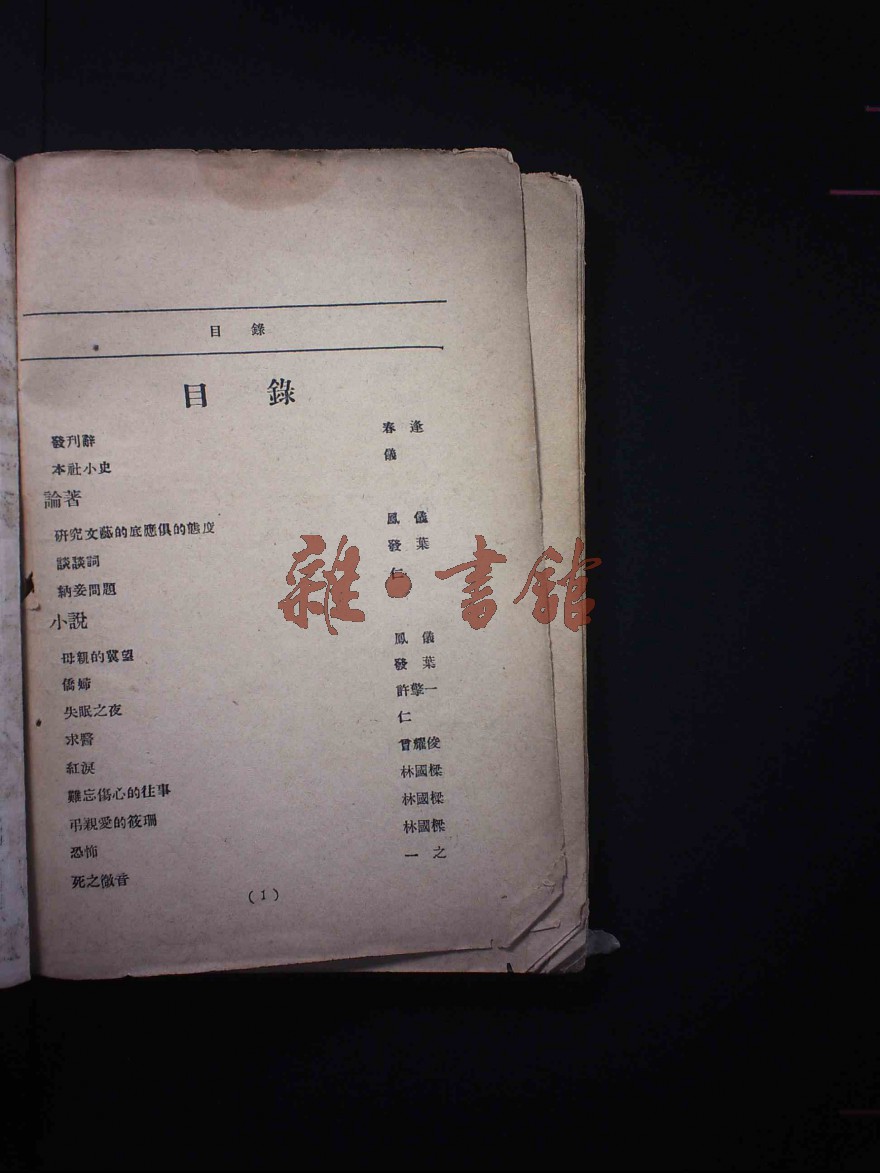 目 錄
目 錄
發刊辭 春 逢
本社小史 儀
論著
研究文藝的底應俱的態度 鳳 儀
談談詞 發 葉
納妾問題 仁
小說
母親的冀望 鳳 儀
僑婦 發 葉
失眠之夜 許擎一
求醫 仁
紅淚 曾耀俊
難忘傷心的往事 林國樑
弔親愛的筱珊 林國樑
恐怖 林國樑
死之微音 一 之
(1)
雜·書館